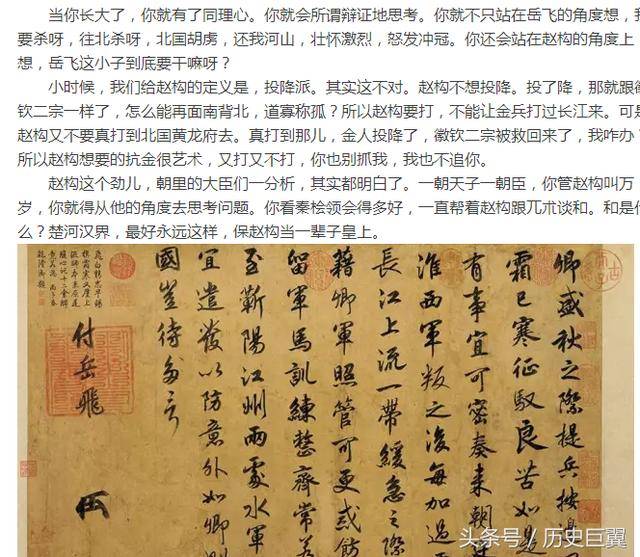 当你长大了，你就有了同理心。你就会所谓辩证地思考。你就不只站在岳飞的角度想，我
要杀呀，往北杀呀，北国胡虏，还我河山，壮怀激烈，怒发冲冠。你还会站在赵构的角度上
想，岳飞这小子到底要干嘛呀？
小时候，我们给赵构的定义是，投降派。其实这不对。赵构不想投降。投了降，那就跟徽
钦二宗一样了，怎么能再面南背北，道寡称孤？所以赵构要打，不能让金兵打过长江来。可是
赵构又不要真打到北国黄龙府去。真打到那儿，金人投降了，徽钦二宗被救回来了，我咋办？
所以赵构想要的抗金很艺术，又打又不打，你也别抓我，我也不追你。
赵构这个劲儿，朝里的大臣们一分析，其实都明白了。一朝天子一朝臣，你管赵构叫万
岁，你就得从他的角度去思考问题。你看秦桧领会得多好，一直帮着赵构跟兀术谈和。和是什
么？楚河汉界，最好永远这样，保赵构当一辈子皇上。
卿盛秋之際提兵按邊
霜已寒征馭良苦如是
有事宜可密奏來朝
淮西軍叛之後每加過
長江上流一帶緩急之際
藉卿軍照管可更戒飭
留軍馬訓練整齊常若
至蘄陽江州兩處水軍
宜遣發以防意外如卿
國豈待多言
付岳飛
头条号／历史巨翼